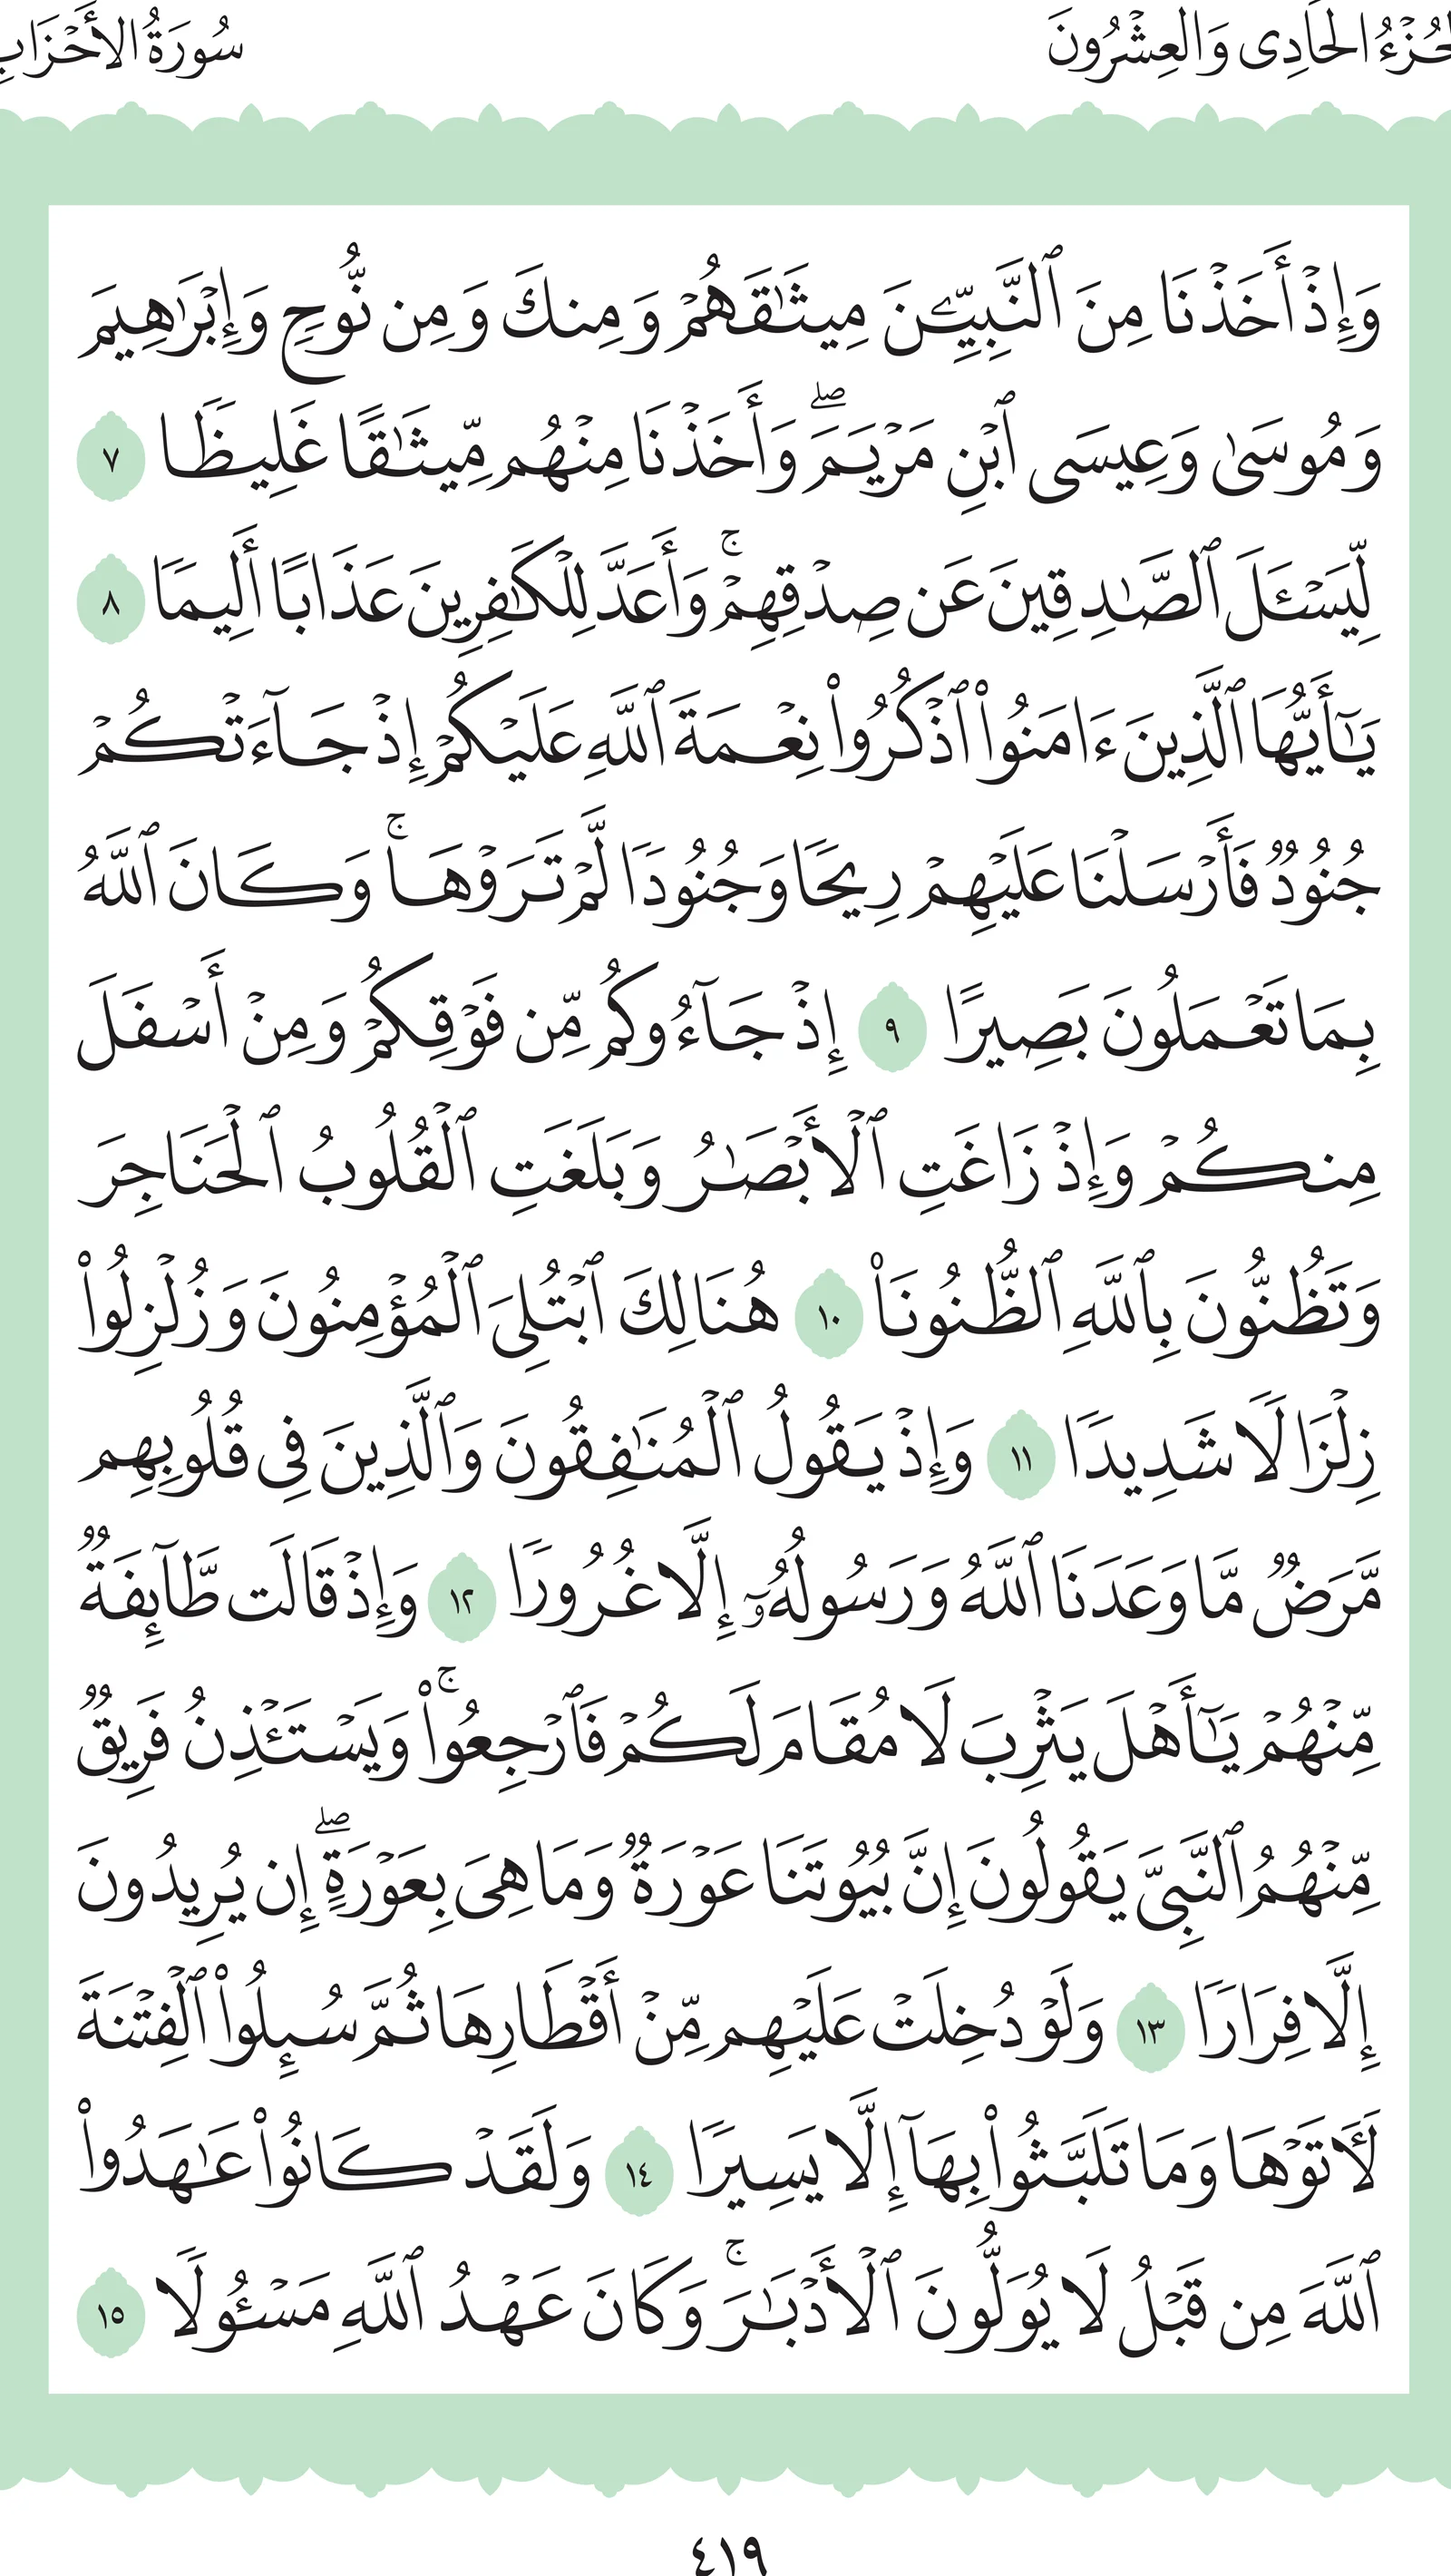 الجُزْءُ الحَادِى وَالعِشْرُونَ
سُورَةُ الأَحْزَابِ
وَإِذْ أَخَذْنَا مِنَ ٱلنَّبِيِّـۧنَ مِيثَـٰقَهُمْ وَمِنكَ وَمِن نُّوحٍ وَإِبْرَٰهِيمَ
وَمُوسَىٰ وَعِيسَى ٱبْنِ مَرْيَمَ ۖ وَأَخَذْنَا مِنْهُم مِّيثَـٰقًا غَلِيظًا ٧
لِّيَسْـَٔلَ ٱلصَّـٰدِقِينَ عَن صِدْقِهِمْ ۚ وَأَعَدَّ لِلْكَـٰفِرِينَ عَذَابًا أَلِيمًا ٨
يَـٰٓأَيُّهَا ٱلَّذِينَ ءَامَنُوا۟ ٱذْكُرُوا۟ نِعْمَةَ ٱللَّهِ عَلَيْكُمْ إِذْ جَآءَتْكُمْ
جُنُودٌ فَأَرْسَلْنَا عَلَيْهِمْ رِيحًا وَجُنُودًا لَّمْ تَرَوْهَا ۚ وَكَانَ ٱللَّهُ
بِمَا تَعْمَلُونَ بَصِيرًا ٩ إِذْ جَآءُوكُم مِّن فَوْقِكُمْ وَمِنْ أَسْفَلَ
مِنكُمْ وَإِذْ زَاغَتِ ٱلْأَبْصَـٰرُ وَبَلَغَتِ ٱلْقُلُوبُ ٱلْحَنَاجِرَ
وَتَظُنُّونَ بِٱللَّهِ ٱلظُّنُونَا۠ ١٠ هُنَالِكَ ٱبْتُلِىَ ٱلْمُؤْمِنُونَ وَزُلْزِلُوا۟
زِلْزَالًا شَدِيدًا ١١ وَإِذْ يَقُولُ ٱلْمُنَـٰفِقُونَ وَٱلَّذِينَ فِى قُلُوبِهِم
مَّرَضٌ مَّا وَعَدَنَا ٱللَّهُ وَرَسُولُهُۥٓ إِلَّا غُرُورًا ١٢ وَإِذْ قَالَت طَّآئِفَةٌ
مِّنْهُمْ يَـٰٓأَهْلَ يَثْرِبَ لَا مُقَامَ لَكُمْ فَٱرْجِعُوا۟ ۚ وَيَسْتَـْٔذِنُ فَرِيقٌ
مِّنْهُمُ ٱلنَّبِىَّ يَقُولُونَ إِنَّ بُيُوتَنَا عَوْرَةٌ وَمَا هِىَ بِعَوْرَةٍ ۖ إِن يُرِيدُونَ
إِلَّا فِرَارًا ١٣ وَلَوْ دُخِلَتْ عَلَيْهِم مِّنْ أَقْطَارِهَا ثُمَّ سُئِلُوا۟ ٱلْفِتْنَةَ
لَـَٔاتَوْهَا وَمَا تَلَبَّثُوا۟ بِهَآ إِلَّا يَسِيرًا ١٤ وَلَقَدْ كَانُوا۟ عَـٰهَدُوا۟
ٱللَّهَ مِن قَبْلُ لَا يُوَلُّونَ ٱلْأَدْبَـٰرَ ۚ وَكَانَ عَهْدُ ٱللَّهِ مَسْـُٔولًا ١٥
٤١٩